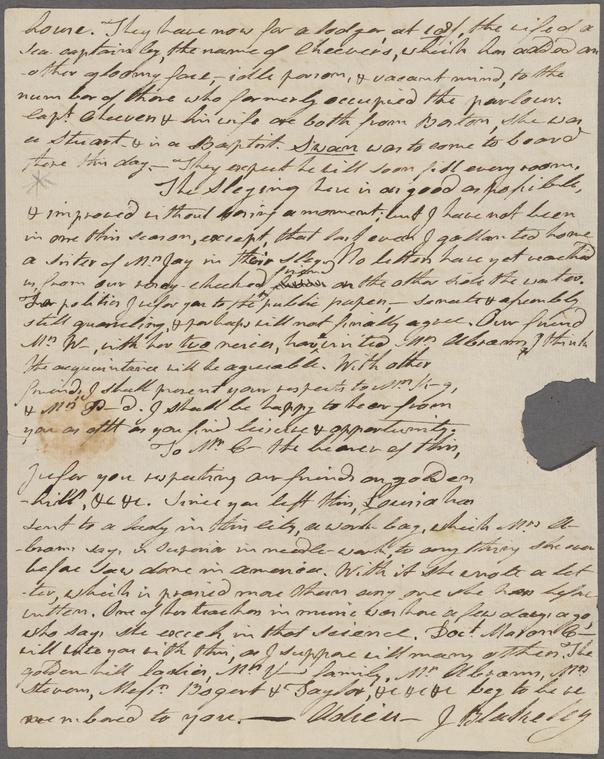 house. They have now for a lodger, at 18/, the wife of a
sea captain by the name of Cheevers, which has added an
-other gloomy face, - idle person, & vacant mind, to the
number of those who formerly occupied the parlour.
Capt. Cheevers & his wife are both from Boston, she was
a Stuart & is a Baptist. Swan was to come to board
there this day. - They expect he will soon fill every room.
The Sleging here is as good as possible,
& improved without losing a moment; but I have not been
in one this season, except, that last even I gallanted home
a sister of Mrs Jay in their sleg. No letters have yet reached
us from our rosy-cheeked friend on the other side the water.
For politics I refer you to the public papers, - senate & assembly
still quarreling, & perhaps will not finally agree. Our friend
Mrs W-, with her two nieces, have visited Mrs Abrams, & I think
the acquaintance will be agreeable. With other
friends I shall present your respects to Mrs K-g,
& Mrs B-d. I shall be happy to hear from
you as oft as you find leisure & opportunity.
To Mr. C- the bearer of this,
I refer you respecting our friends on golden
-hill, &c &c. Since you left this, Louisa has
sent to a lady in this city, a work bag, which Mrs A-
brams says is superior in needle-work, to any thing she ever
before saw done in america. With it she wrote a let
-ter, which is praised more than any one she has before
written. One of her teachers in music was here a few days ago,
who says she excels in that science. Doct. Mason &-
will be with you with this, as I suppose will many others. The
golden hill ladies, Mrs V- family, Mr. Abrams, Mrs
Stevens, Messrs. Bogert & Taylor, &c &c &c beg to be re
-membered to you. - Adieu - J Blakeley